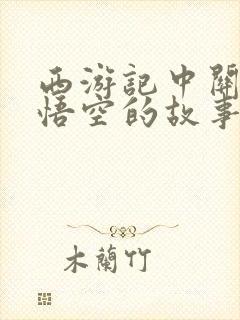 西游記中關
悟空的故事
木蘭竹